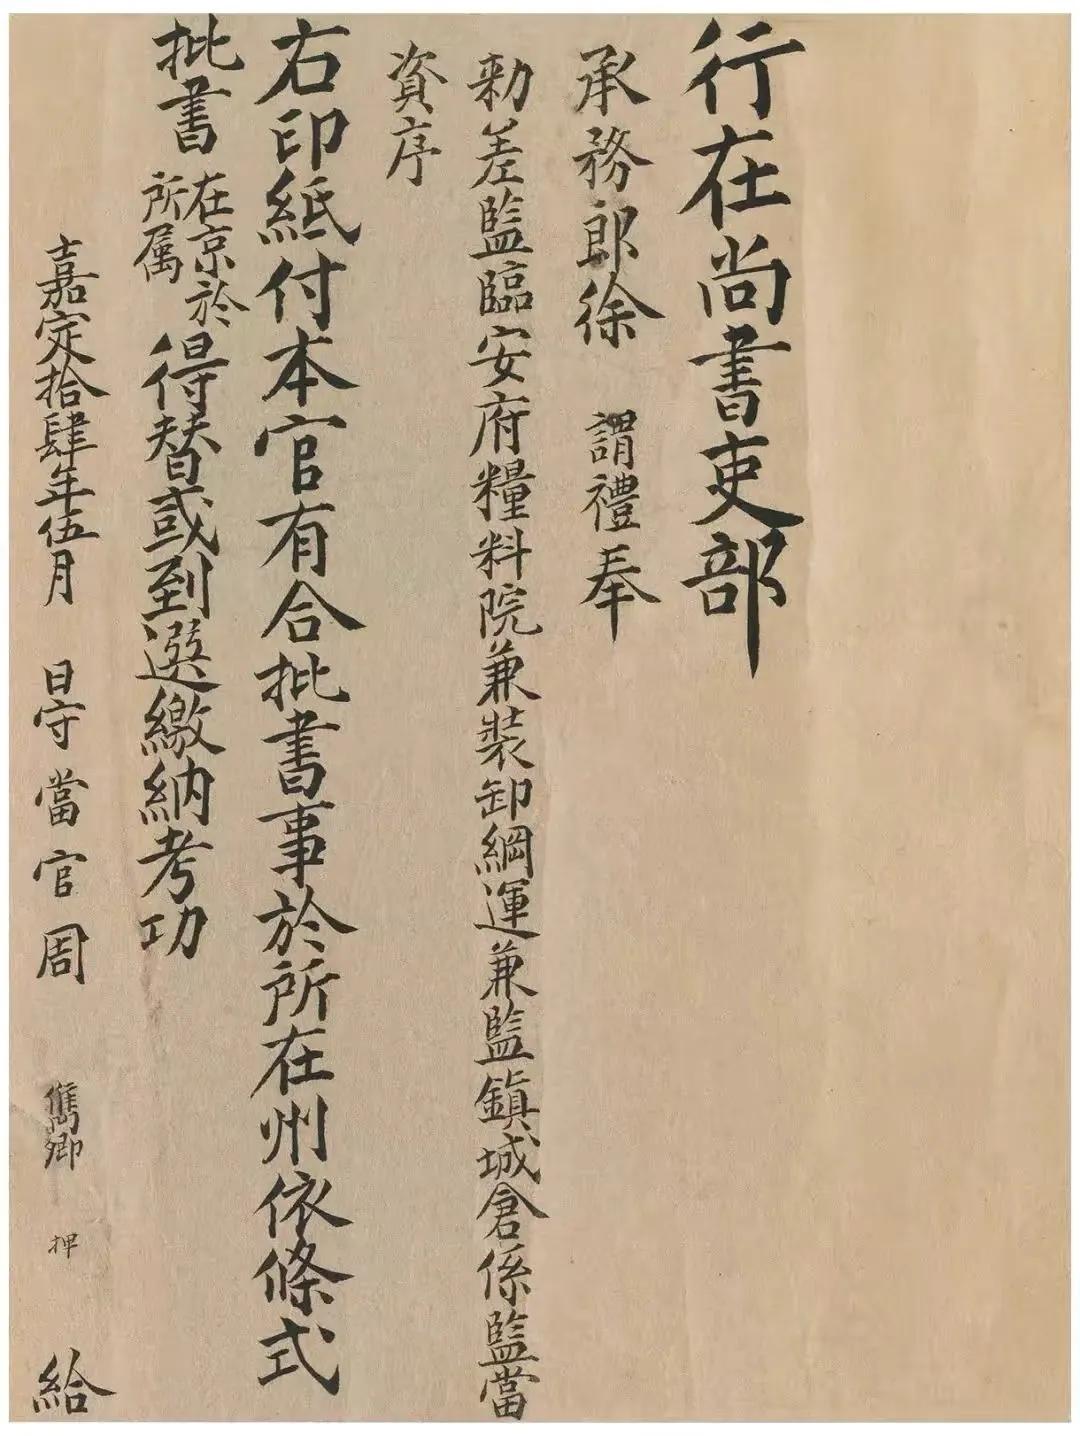 行在尚書吏部
承務郎徐 謂禮奉
勑差監臨安府糧料院兼裝卸綱運兼監鎮城倉係監當
資序
右印紙付本官有合批書事於所在州依條式
批書在京於所属得替或到選繳納考功
嘉定拾肆年伍月 日守當官周 儁卿 押 給